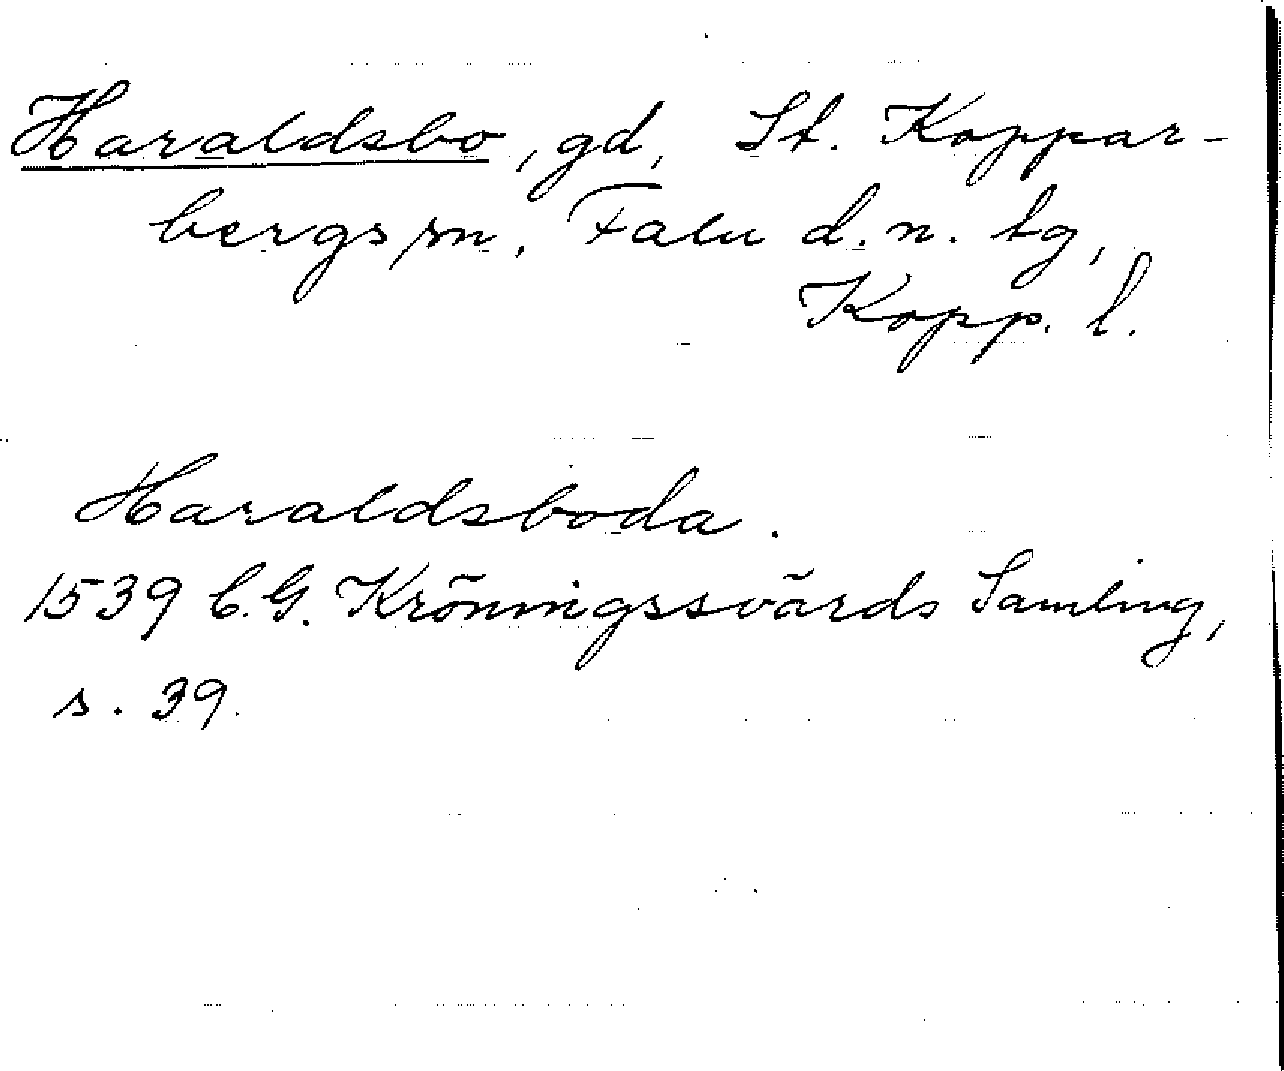 Haraldsbo, gd, St. Koppar-
bergs sn, Falu d.n. tg,
Kopp. l.
Haraldsboda.
1539 C.G. Kröningssvärds Samling,
s. 39.